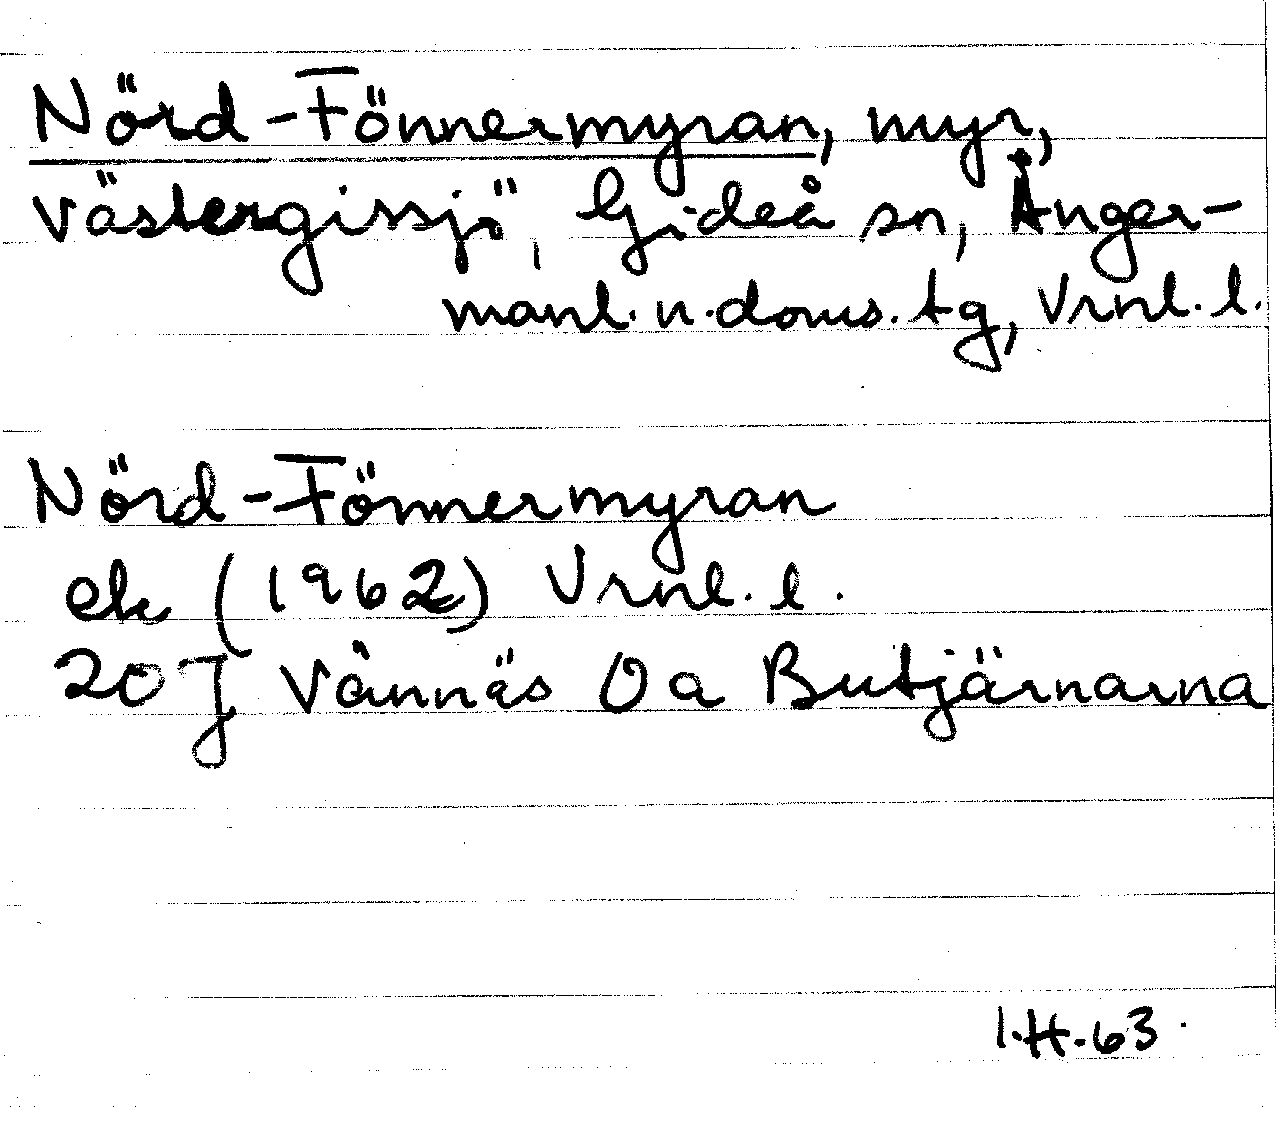 Nörd-Fönnermyran, myr,
Västergissjö, Gideå sn, Ånger-
manl. n. doms. tg, Vrnl. l.
Nörd-Fönnermyran
ek (1962) Vrnl. l.
20 J Vännäs 0 a Butjärnarna
I.H.63.